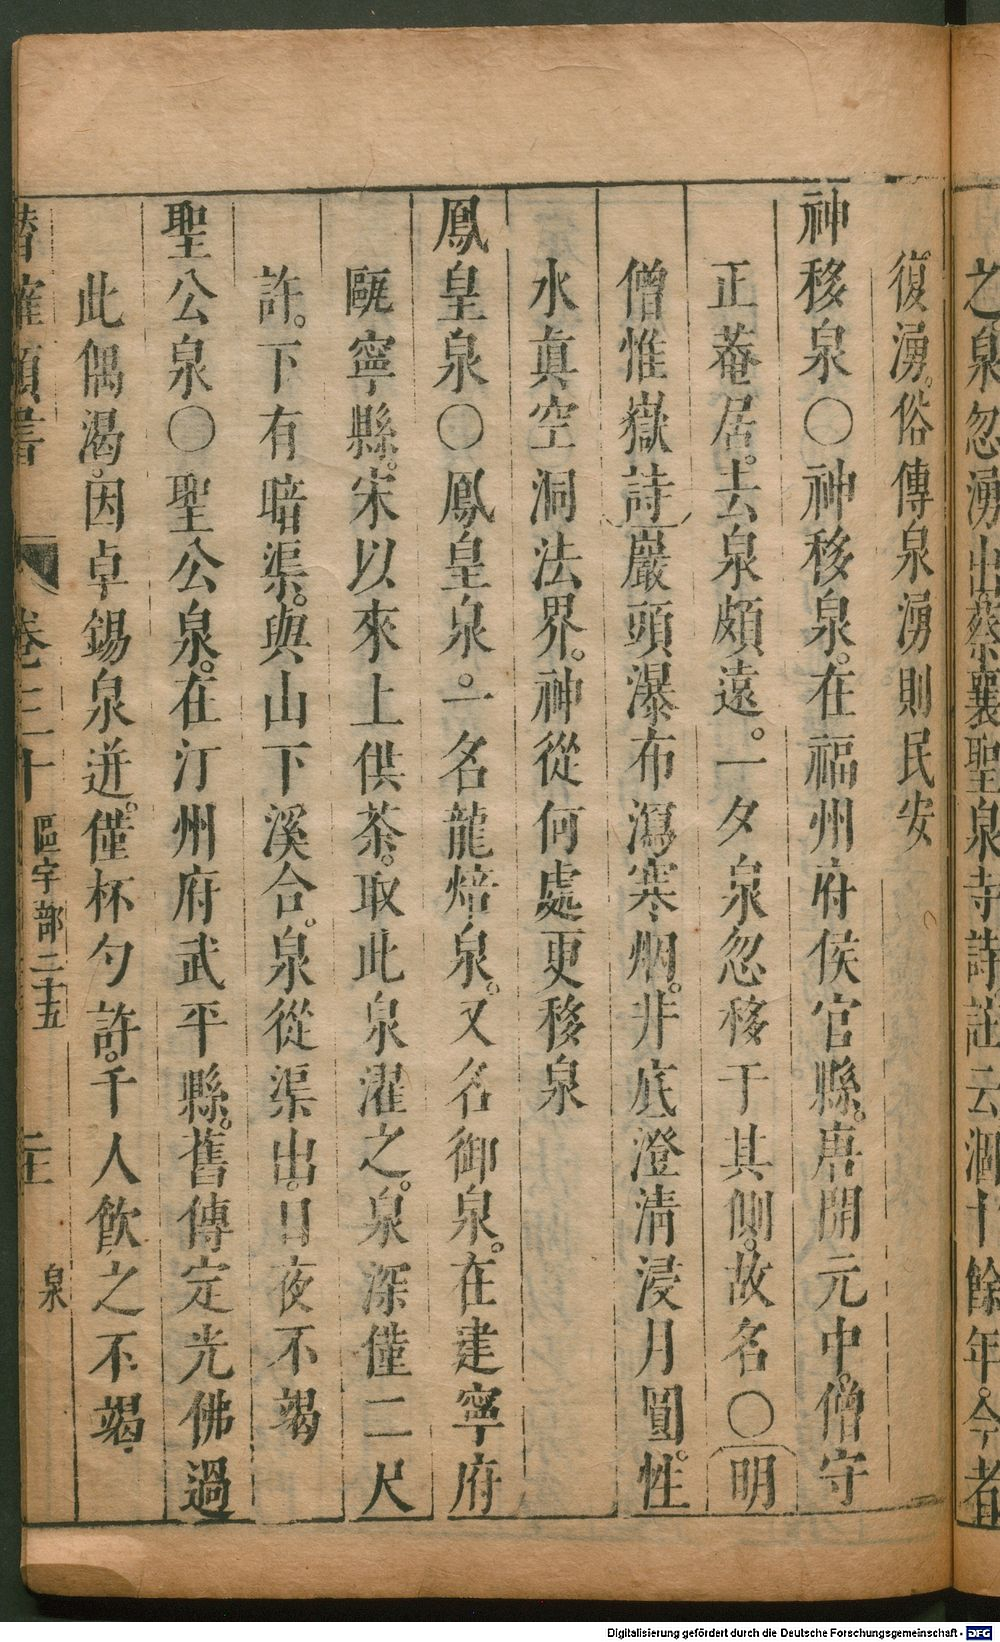 之泉忽湧出蔡襄聖泉寺詩註云涸十餘年今者
復湧。俗傳泉湧則民安
神移泉〇神移泉。在福州府侯官縣。唐開元中。僧守
正菴居。去泉頗遠。一夕泉忽移于其側。故名〇明
僧惟嶽詩巖頭瀑布瀉寒烟。非底澄清浸月圓。性
水真空洞法界。神從何處更移泉
鳳皇泉〇鳳皇泉。一名龍焙泉。又名御泉。在建寧府
甌寧縣。宋以來上供茶。取此泉濯之。泉深僅二尺
許。下有暗渠。與山下溪合。泉從渠出。日夜不竭
聖公泉〇聖公泉。在汀州府武平縣。舊傳定光佛過
此偶渴。因卓錫泉迸。僅杯勺許。千人飲之不竭
潛確類書 卷三十 區宇部二十五 泉
Digitalisierung gefördert durch die Deutsche Forschungsgemeinschaft - DFG